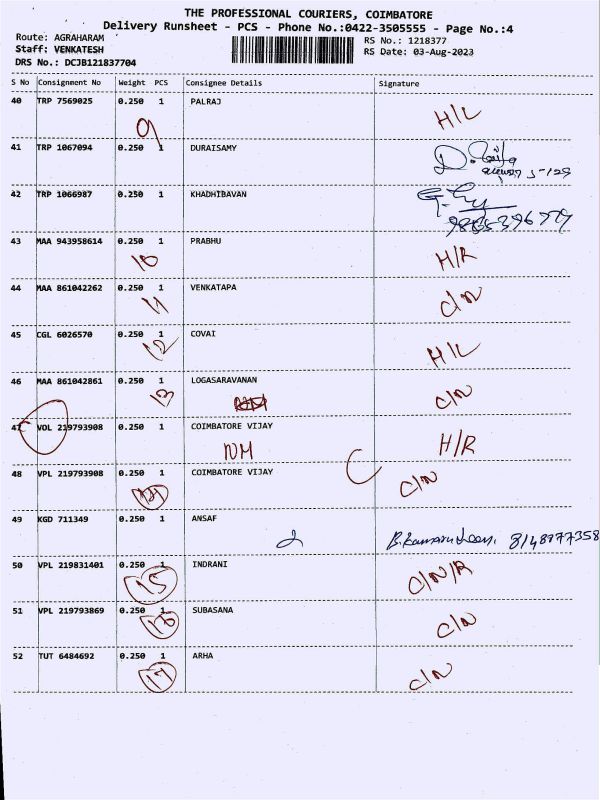 THE PROFESSIONAL COURIERS, COIMBATORE
Delivery Runsheet - PCS - Phone No.:0422-3505555 - Page No.:4
Route: AGRAHARAM
RS No.: 1218377
Staff: VENKATESH
RS Date: 03-Aug-2023
DRS No.: DCJB121837704
S No Consignment No Weight PCS Consignee Details Signature
40 TRP 7569025 0.250 1 PALRAJ
H/L
41 TRP 1067094 0.250 1 DURAISAMY
42 TRP 1066987 0.250 1 KHADHIBAVAN
43 MAA 943958614 0.250 1 PRABHU
10 H/R
44 MAA 861042262 0.250 1 VENKATAPA
11 C/N
45 CGL 6026570 0.250 1 COVAI
12 H/L
46 MAA 861042861 0.250 1 LOGASARAVANAN
13 C/N
47 VOL 219793908 0.250 1 COIMBATORE VIJAY
NM H/R
48 VPL 219793908 0.250 1 COIMBATORE VIJAY
14 C/N
49 KGD 711349 0.250 1 ANSAF
50 VPL 219831401 0.250 1 INDRANI
15 C/N/R
51 VPL 219793869 0.250 1 SUBASANA
16 C/N
52 TUT 6484692 0.250 1 ARHA
17 C/N